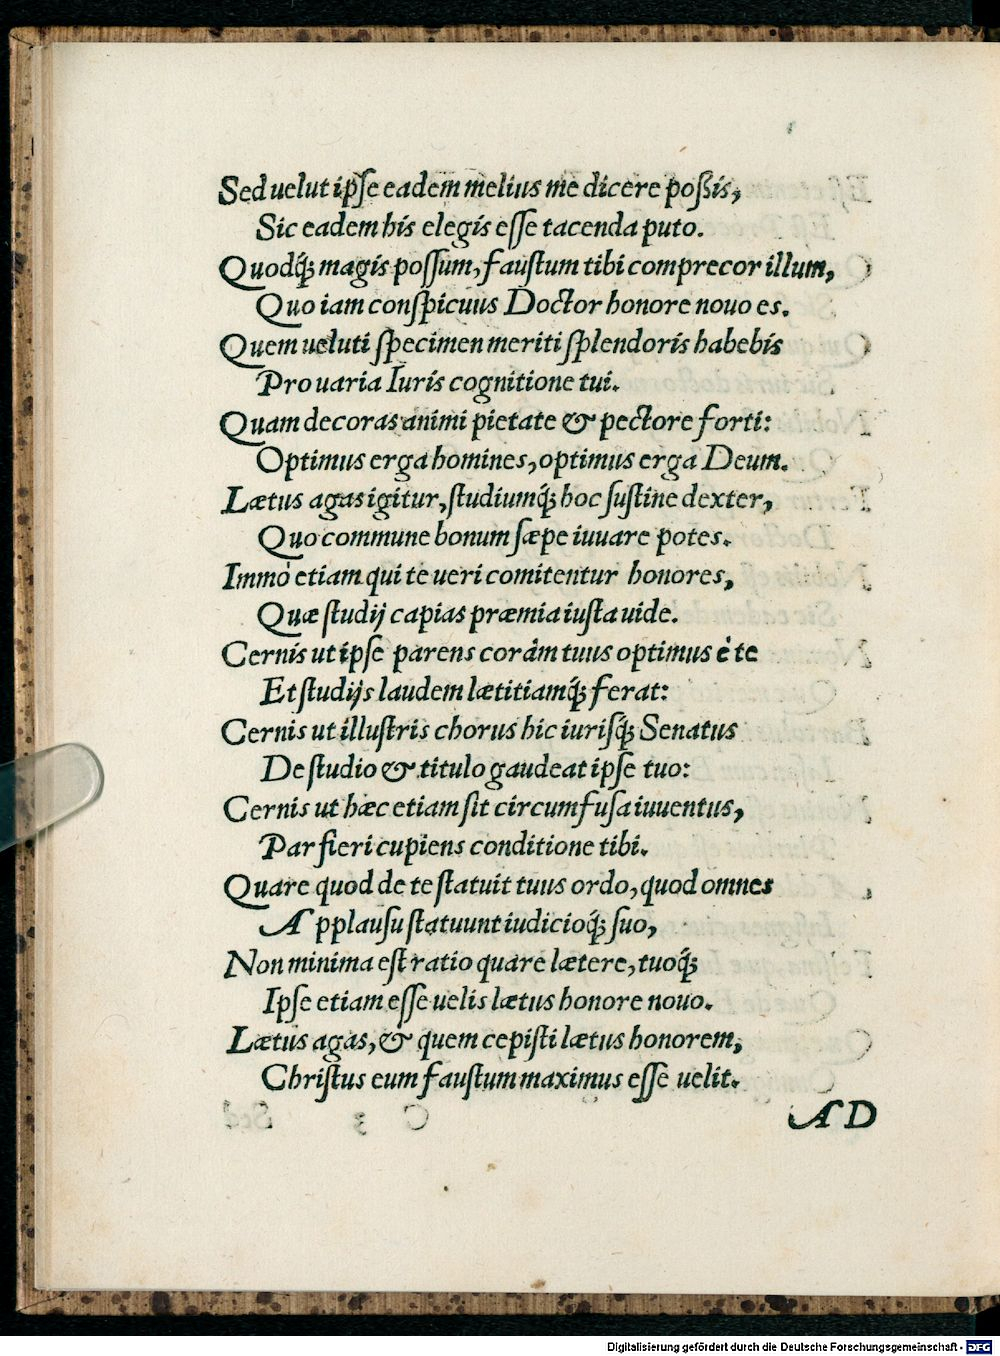 Sed uelut ipſe eadem melius me dicere poßis,
Sic eadem his elegis eſſe tacenda puto.
Quodq́; magis poſſum, fauſtum tibi comprecor illum,
Quo iam conſpicuus Doctor honore nouo es.
Quem ueluti ſpecimen meriti ſplendoris habebis
Pro uaria Iuris cognitione tui.
Quam decoras animi pietate & pectore forti:
Optimus erga homines, optimus erga Deum.
Lætus agas igitur, ſtudiumq́; hoc ſuſtine dexter,
Quo commune bonum ſæpe iuuare potes.
Immò etiam qui te ueri comitentur honores,
Quæ ſtudij capias præmia iuſta uide.
Cernis ut ipſe parens corâm tuus optimus è te
Et ſtudijs laudem lætitiamq́; ferat:
Cernis ut illuſtris chorus hic iurisq́; Senatus
De ſtudio & titulo gaudeat ipſe tuo:
Cernis ut hæc etiam ſit circumfuſa iuuentus,
Par fieri cupiens conditione tibi.
Quare quod de te ſtatuit tuus ordo, quod omnes
Applauſu ſtatuunt iudicioq́; ſuo,
Non minima eſt ratio quare lætere, tuoq́;
Ipſe etiam eſſe uelis lætus honore nouo.
Lætus agas, & quem cepiſti lætus honorem,
Chriſtus eum fauſtum maximus eſſe uelit.
AD
Digitalisierung gefördert durch die Deutsche Forschungsgemeinschaft - DFG